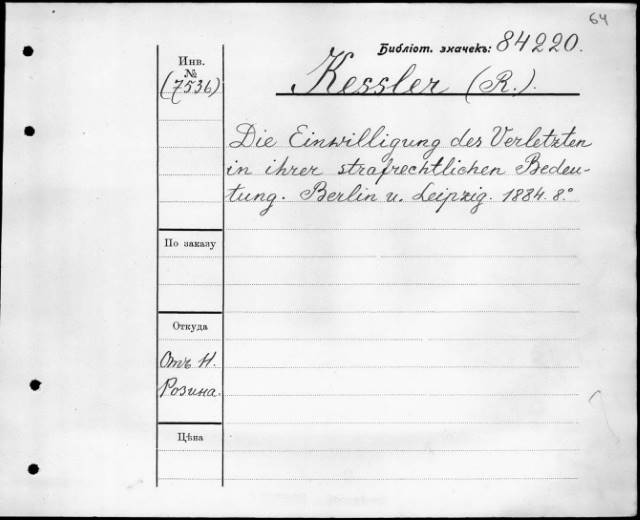 64
Библіот. значекъ: 84220.
Инв.
№
(7536)
Kessler (R.).
Die Einwilligung des Verletzten
in ihrer strafrechtlichen Bedeu-
tung. Berlin u. Leipzig. 1884. 8.°
По заказу
Откуда
Отъ Н.
Розина.
Цѣна